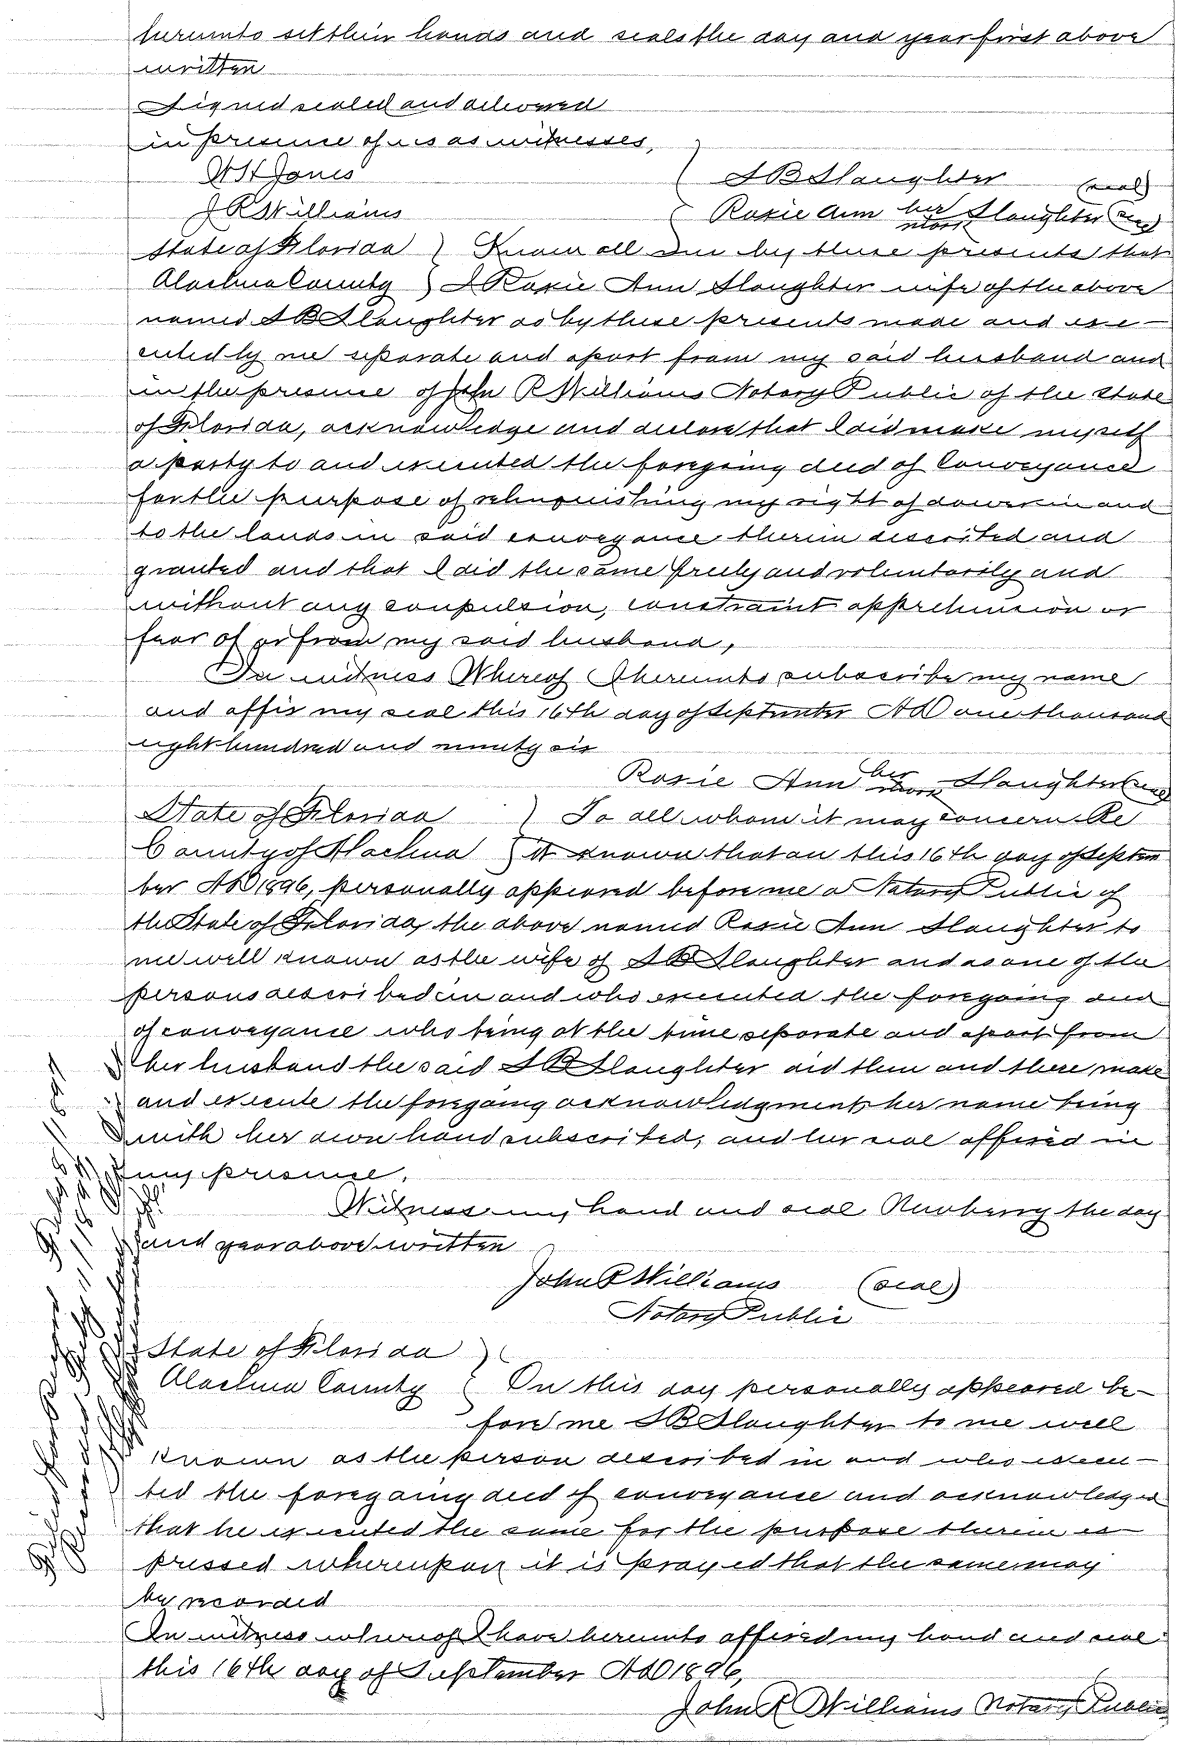 hereunto set their hands and seals the day and year first above
written
Signed sealed and delivered
in presence of us as witnesses,
W H Jones } S B Slaughter (seal)
J R Williams { Rosie Ann her mark Slaughter (seal)
State of Florida } Know all men by these presents that
Alachua County } I Rosie Ann Slaughter wife of the above
named S B Slaughter do by these presents made and exe-
cuted by me separate and apart from my said husband and
in the presence of John R Williams Notary Public of the State
of Florida, acknowledge and declare that I did make myself
a party to and executed the foregoing deed of Conveyance
for the purpose of relinquishing my right of dower in and
to the lands in said conveyance therein described and
granted and that I did the same freely and voluntarily and
without any conpulsion, constraint apprehension or
fear of or from my said husband,
In witness Whereof I hereunto subscribe my name
and affix my seal this 16th day of September AD one thousand
eight hundred and ninety six
Rosie Ann her mark Slaughter (seal)
State of Florida } To all whom it may concern Be
County of Alachua } it known that on this 16th day of Septem
ber AD 1896, personally appeared before me a Notary Public of
the State of Florida, the above named Rosie Ann Slaughter to
me well known as the wife of S B Slaughter and as one of the
persons described in and who executed the foregoing deed
of conveyance who being at the time separate and apart from
her husband the said S B Slaughter did then and there make
and execute the foregoing acknowledgment, her name being
with her own hand subscribed, and her seal affixed in
my presence,
Witness my hand and seal Newberry the day
and year above written
John R Williams (seal)
Notary Public
State of Florida }
Alachua County { On this day personally appeared be-
fore me S B Slaughter to me well
known as the person described in and who execu-
ted the foregoing deed of conveyance and acknowledged
that he executed the same for the purpose therein ex-
pressed whereupon it is prayed that the same may
be recorded
In witness whereof I have hereunto affixed my hand and seal
this 16th day of September AD 1896,
John R Williams Notary Public